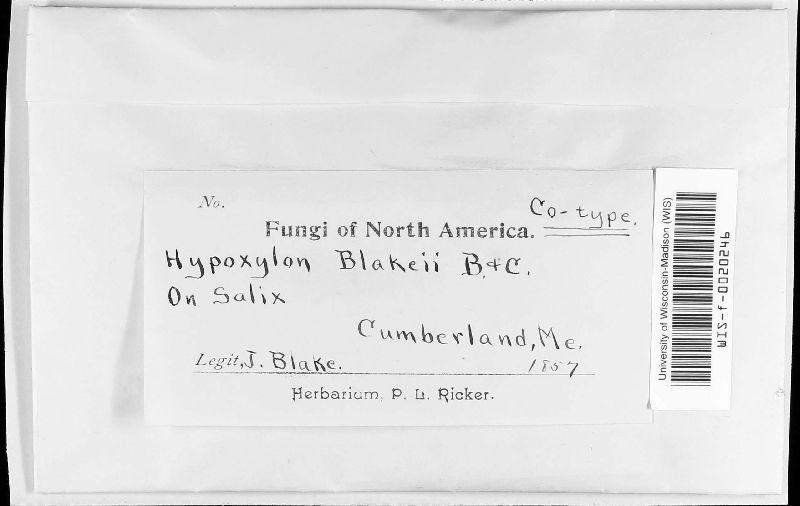 No.
Co-type.
Fungi of North America.
Hypoxylon Blakeii B.&C.
On Salix
Cumberland, Me.
Legit, J. Blake. 1857
Herbarium, P. L. Ricker.
University of Wisconsin-Madison (WIS)
WIS-f-0020246